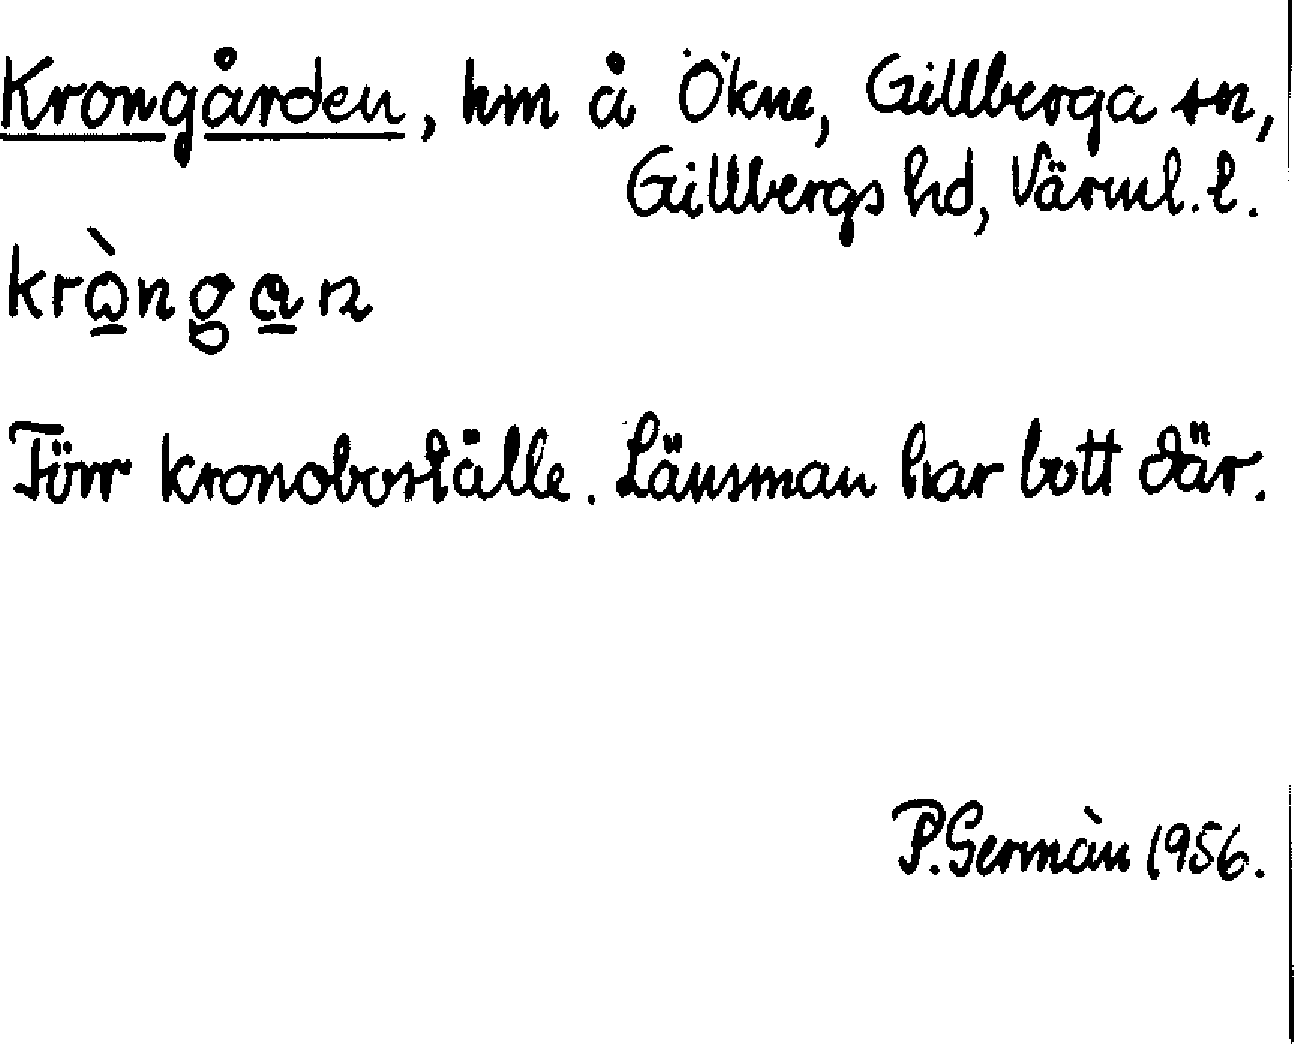 Krongården, hm å Ökne, Gillberga sn,
Gillbergs hd, Värml. l.
krὼ̲nga̲n
Förr kronoboställe. Länsman har bott där.
P. Germàn 1956.